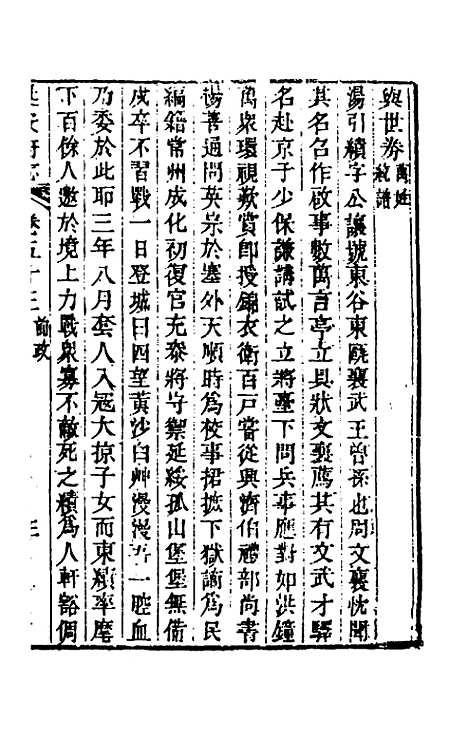 與世券萬姓統譜
湯引績字公讓號東谷東甌襄武王曾孫也周文襄忱聞
其名召作啟事數萬言亭立具狀文襄薦其有文武才驛
名赴京于少保謙講試之立將臺下問兵事應對如洪鐘
萬眾環視歎賞卽授錦衣衛百戶嘗從興濟伯禮部尚書
楊善通問英宗於塞外天順時為校事捃摭下獄謫為民
編籍常州成化初復官充叅將守禦延綏孤山堡堡無備
戍卒不習戰一日登城曰四望黃沙白艸漫漫吾一腔血
乃委於此耶三年八月套人入寇大掠子女而東績率麾
下百餘人邀於境上力戰眾寡不敵死之績為人軒豁倜
卷五十三 前政